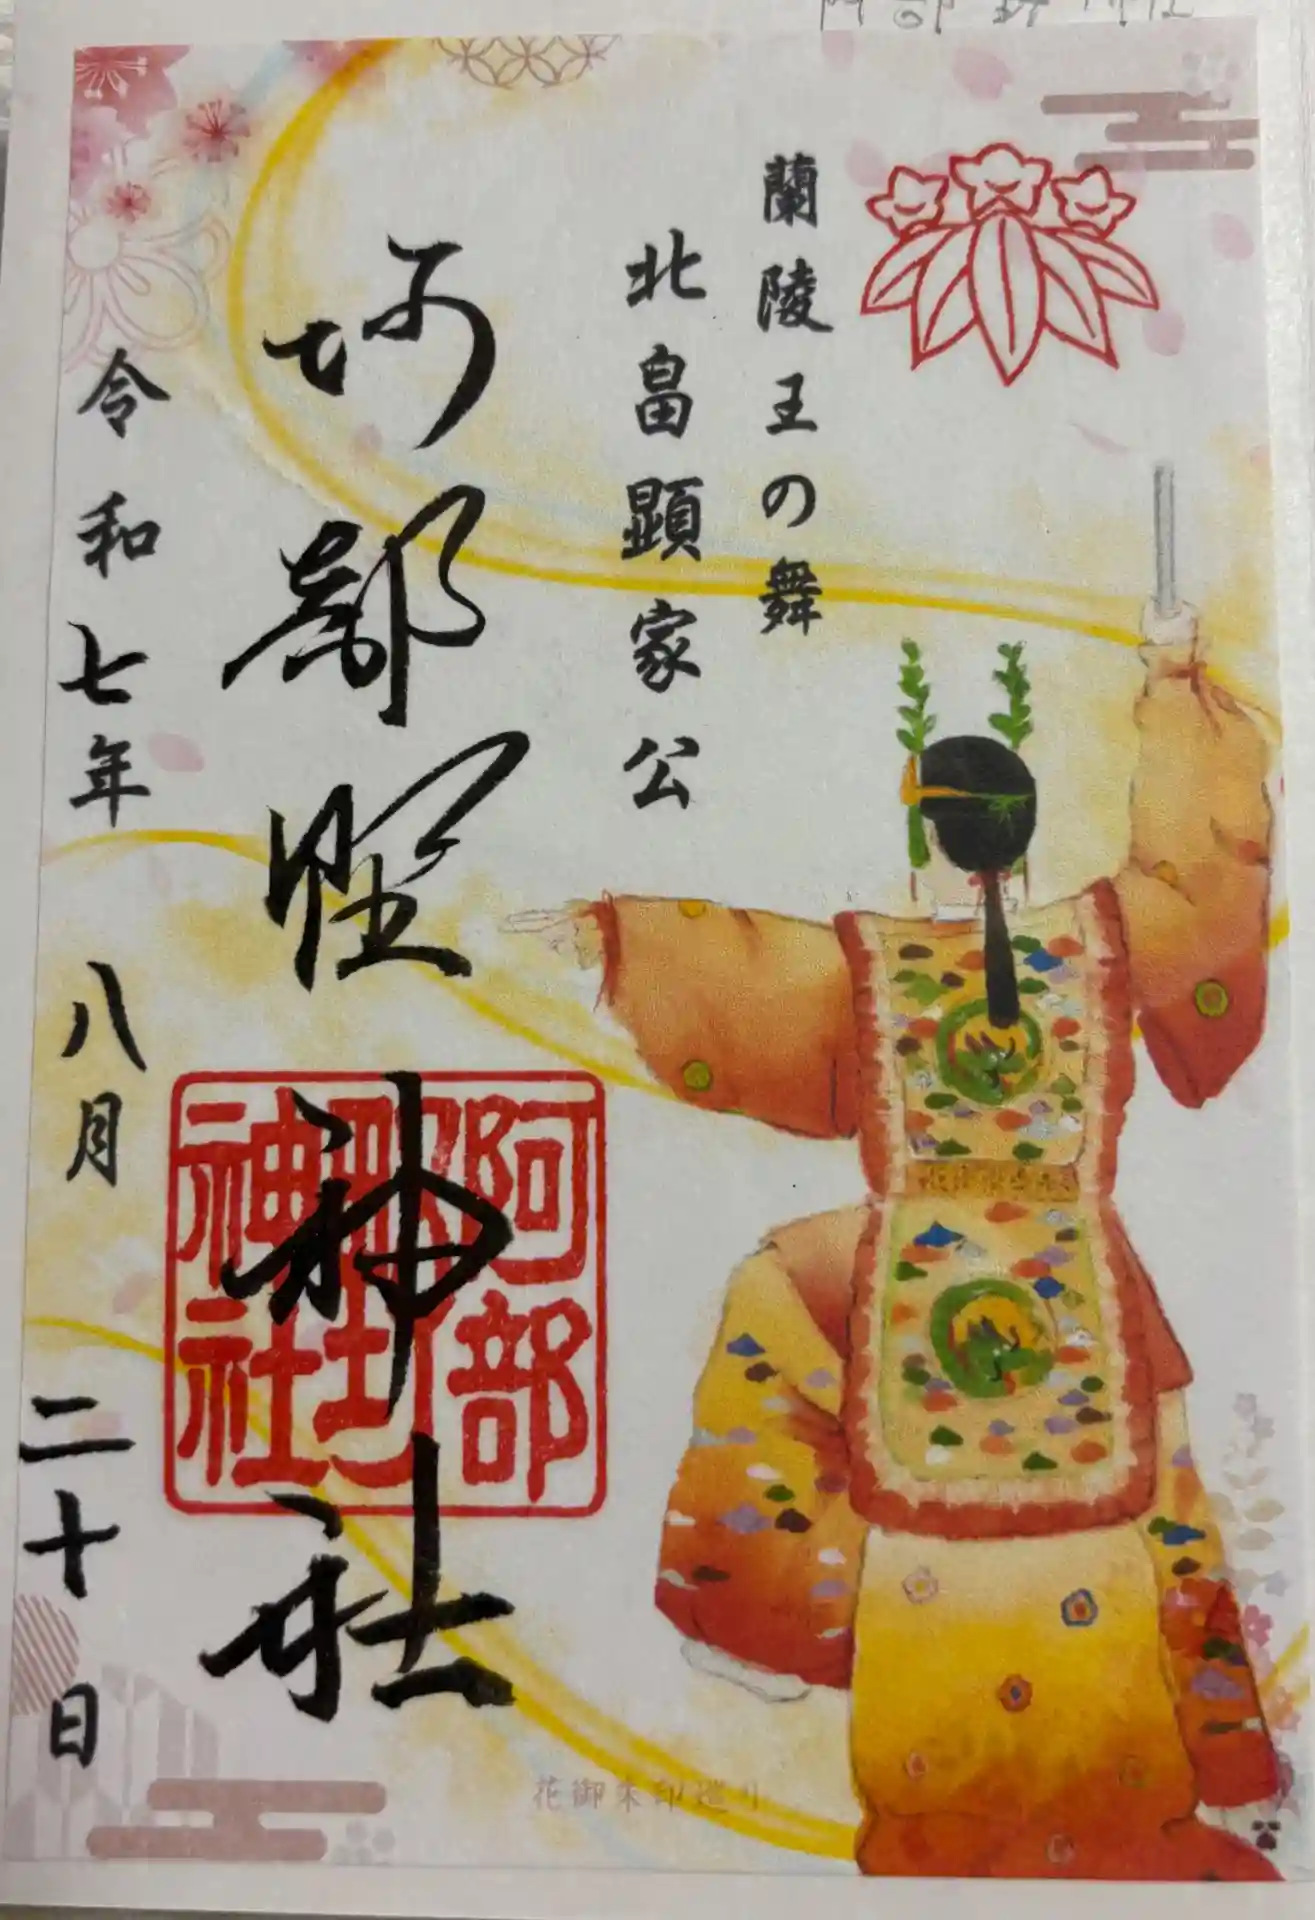 蘭陵王の舞
北畠顕家公
阿部野神社
阿部野神社
令和七年 八月 二十日
花御朱印巡り